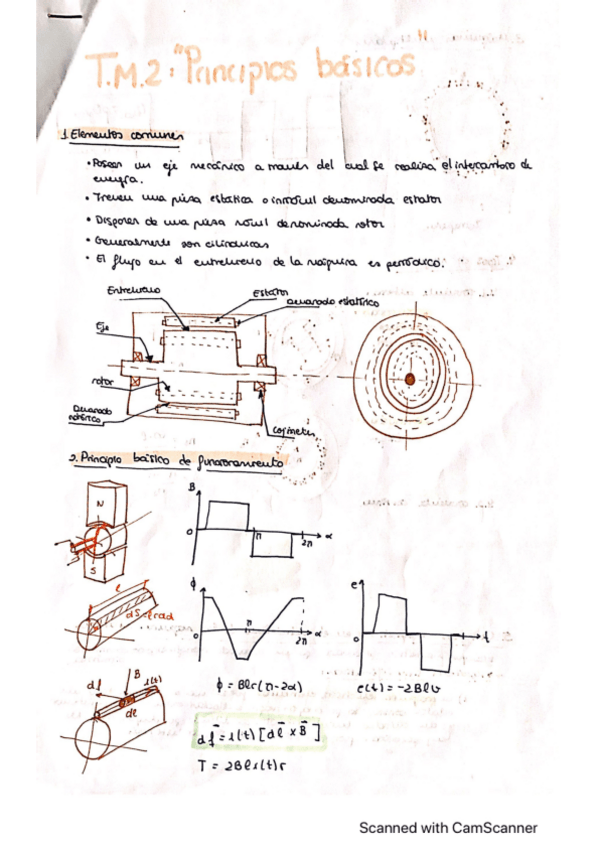 T.M.2: "Principios básicos
1. Elementos comunes
• Poseen un eje mecánico a través del cual se realiza el intercambio de
energía.
• Tienen una pieza estática o inmóvil denominada estator
• Disponen de una pieza móvil denominada rotor
• Generalmente son cilíndricas
• El flujo en el entrehierro de la máquina es periódico.
Entrehierro
Estator
devanado estatórico
Eje
rotor
Devanado
rotórico
Cojinetes
2. Principio básico de funcionamiento
N
S
B
0
π
2π
α
l
ds = l·r·dα
ϕ
0
π
2π
α
e
0
t
df
B
i(t)
dl
ϕ = Blr(π-2α)
e(t) = -2Blv
df = i(t) [dl x B]
T = 2Bli(t)r
Scanned with CamScanner